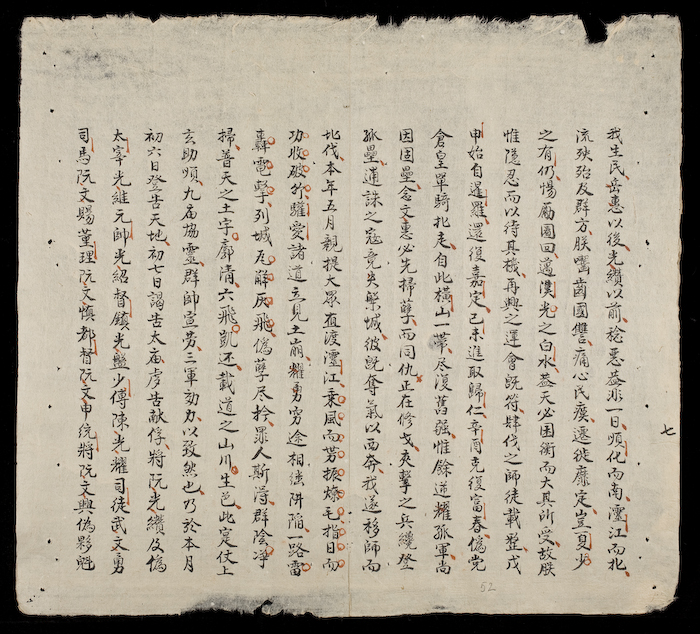 我生民岳惠以後光纘以前稔惡蓋非一日順化而南灅江而北
流殃殆及群方朕嚙齒國讐痛心民瘼遷徙靡定豈夏少
之有仍惕勵圖回邁漢光之白水蓋天必困衡而大其所受故朕
惟隱忍而以待其機再興之運會既符肆伐之師徒載整戊
申始自暹羅還復嘉定己未進取歸仁辛酉克復富春偽党
倉皇單騎北走自此橫山一帶尽復舊疆惟餘逆耀孤軍尚
因固壘念文惠必先掃孽而同仇正在修戈夾擊之兵纔登
孤壘逋誅之寇竟失槃城彼既奪氣以西奔我遂移師而
北伐本年五月親提大眾直渡灅江乘風而势振燎毛指日而
功收破竹驩愛諸道立見土崩耀勇窮途相继阱陷一路雷
轟電擊列城瓦解灰飛偽孽尽拎罪人斯淂群陰净
掃普天之土宇廓清六飛凱还載道之山川生色此定仗上
玄助順九庙協靈群師宣劳三軍効力以致然也乃於本月
初六日登告天地初七日謁告太庙虔告献俘將阮光纘及偽
太宰光維元帥光紹督鎮光盤少傅陳光耀司徒武文勇
司馬阮文賜董理阮文慎都督阮文申統將阮文興偽夥魁
七
52